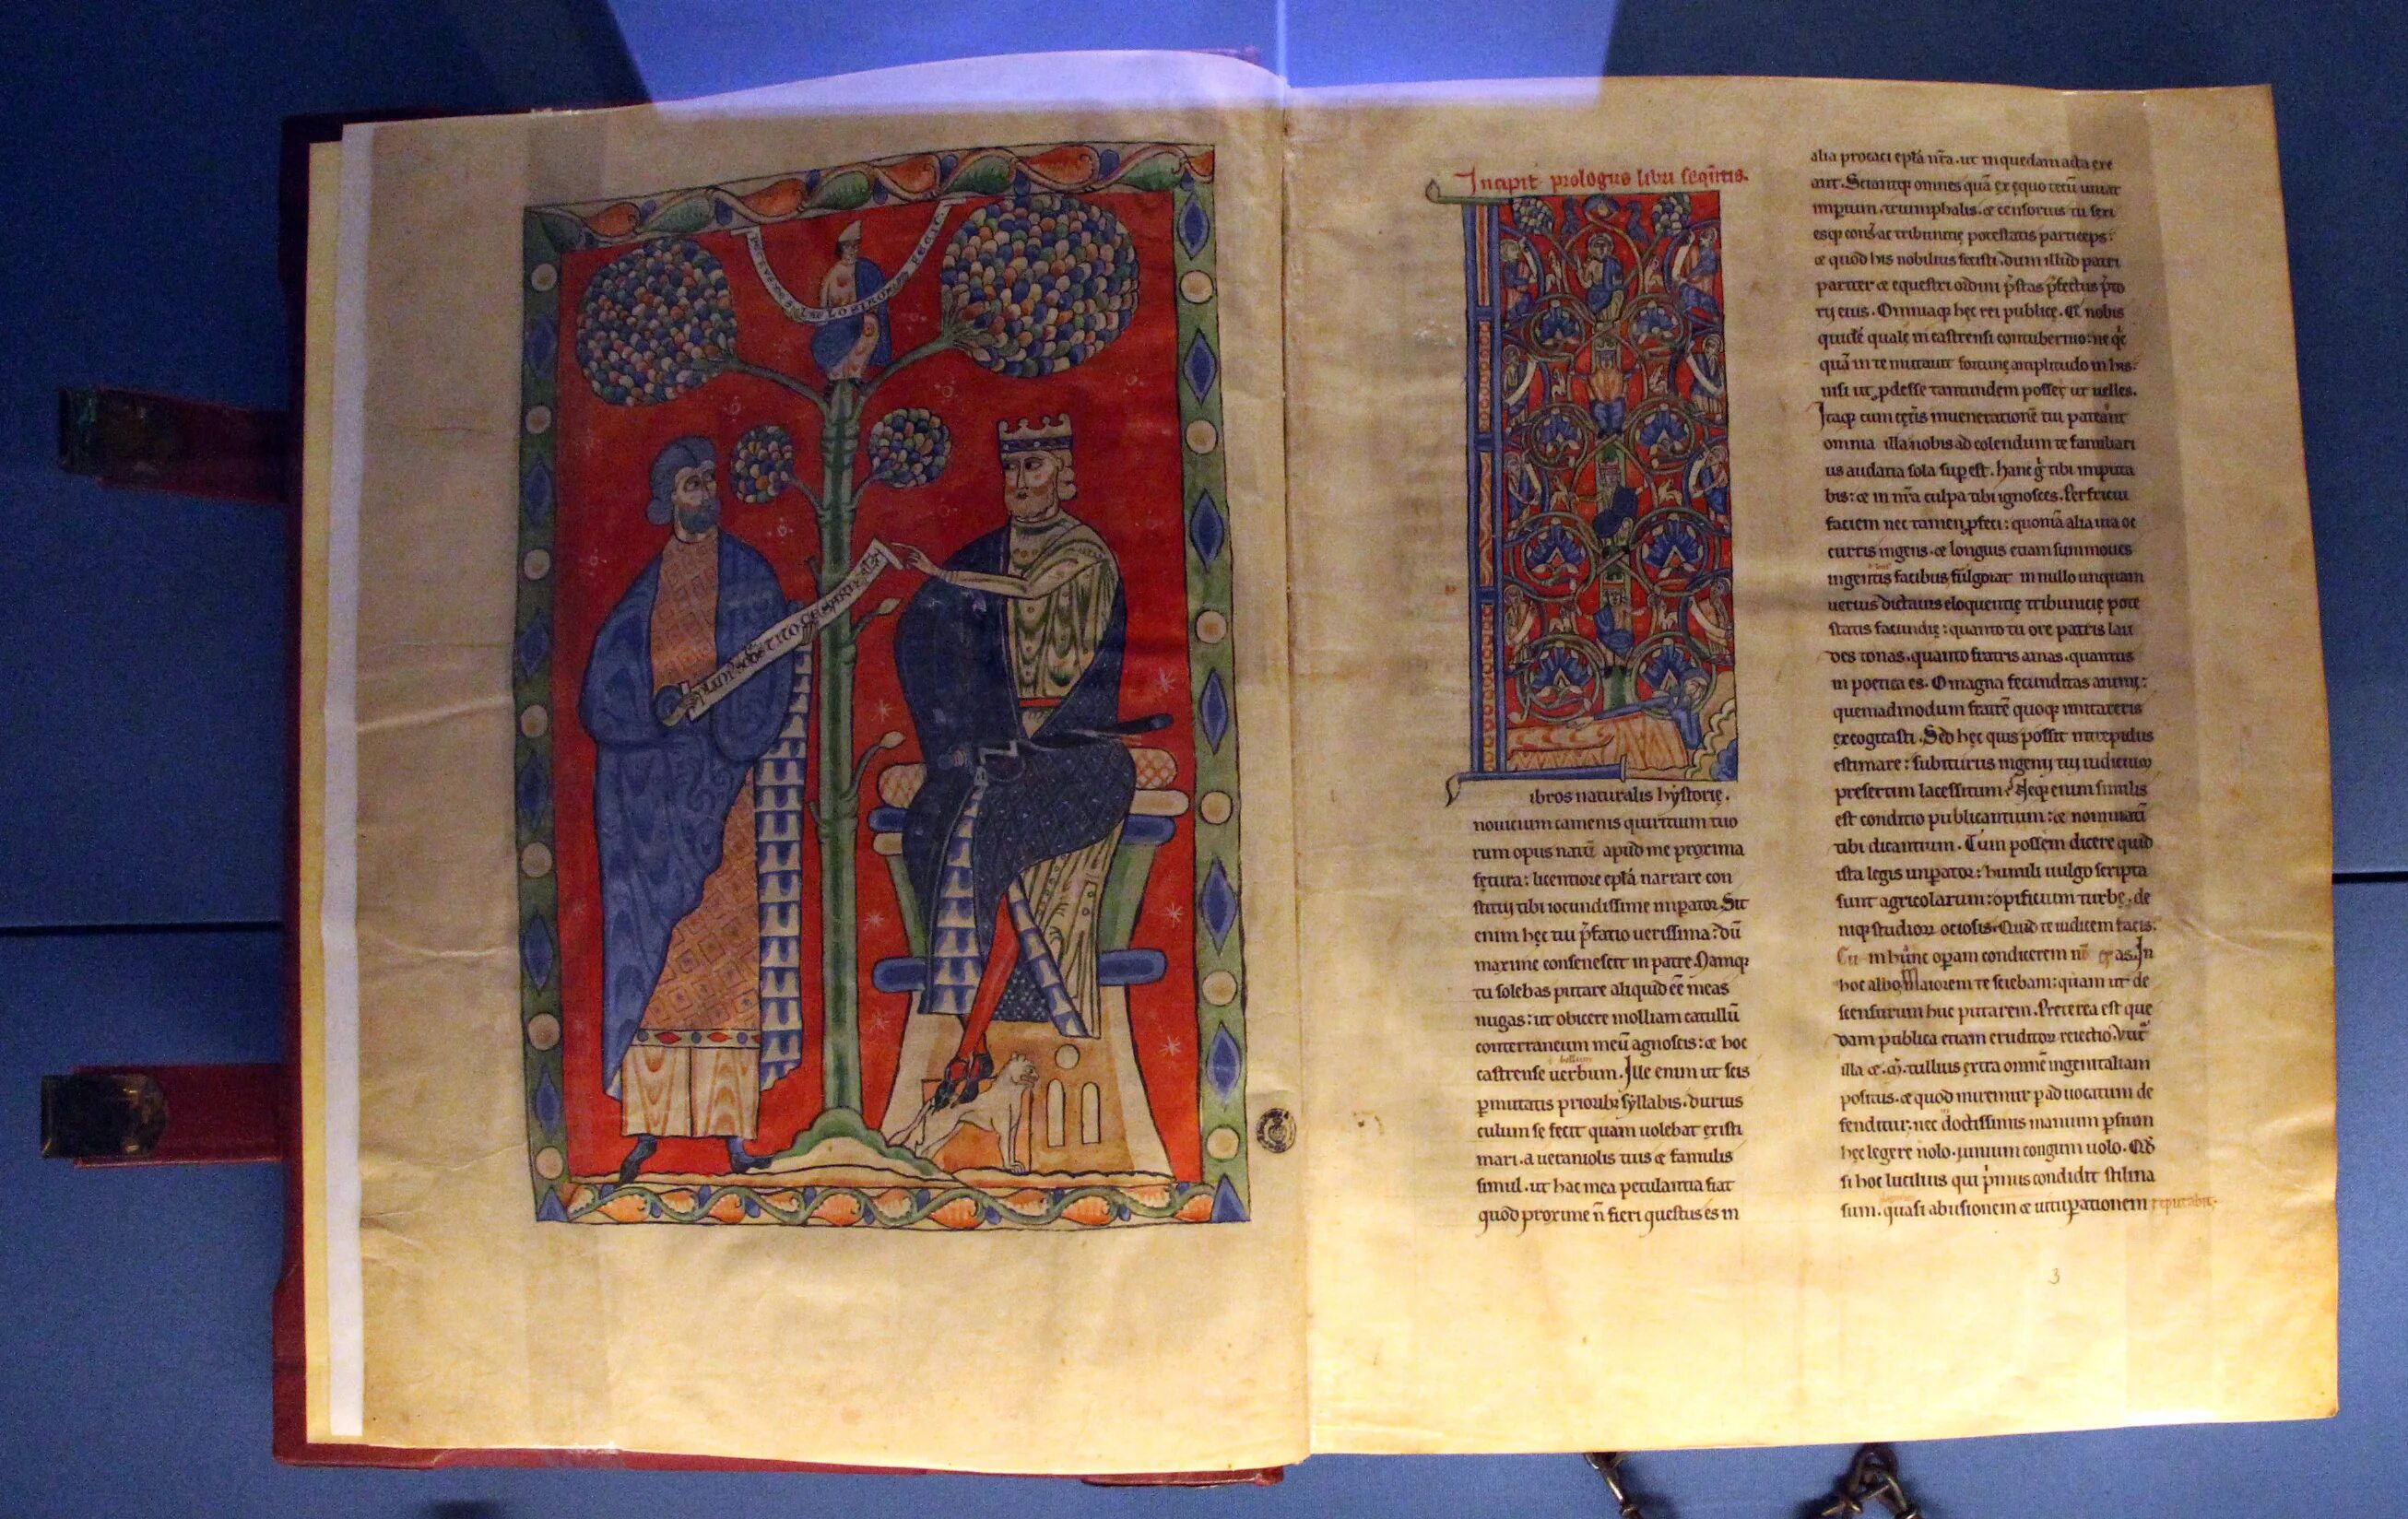 PLINIVS SCDS TITO CESARI
Incipit prologus libri sequentis.
ibros naturalis hystorię.
nouicium camenis quiritium tuo
rum opus natū apud me proxima
fętura: licentiore eplā narrare con
stitui tibi iocundissime impator. Sit
enim hęc tui pfatio uerissima: dū
maxime consenescit in patre. Namq;
tu solebas putare aliquid ēē meas
nugas: ut obicere molliam catullū
conterraneum meū agnoscis: & hoc
bellum
castrense uerbum. Ille enim ut scis
pmutatis priorib; syllabis. durius
culum se fecit quam uolebat existi
mari. a ueraniolis tuis & famulis
simul. ut hac mea petulantia fiat
quod proxime n̄ fieri questus es in
alia procaci eplā nrā. ut in quedam acta exe
ant. Sciantq; omnes quā ex equo tecū uiuat
imprium. triumphalis. & censorius tu sexi
esq; cons̄ ac tribunitię potestatis particeps:
& quod his nobilius fecisti: dum illud patri
pariter & equestri ordini pstas pfectus pto
rij eius. Omniaq; hęc rei publicę. Et nobis
quidē quale in castrensi contubernio: ne qc
quā in te mutauit fortunę amplitudo in his:
nisi ut pdesse tantundem posses ut uelles.
Itaq; cum cęteris in uenerationē tui pateant
omnia illa nobis ad colendum te familiari
us audatia sola supest. Hanc g tibi imputa
bis: & in nrā culpa tibi ignosces. Perfricui
faciem nec tamen pfeci: quoniā alia uia oc
curris ingens. & longius etiam summoues
ingentis facibus fulgorat in nullo unquam
uerius dictatis eloquentię tribunicię pote
statis facundię: quanto tu ore patris lau
des tonas. quanto fratris amas. quantus
in poetica es. O magna fecunditas animi:
quemadmodum fratrē quoq; imitareris
excogitasti. Sed hęc quis possit intrepidus
estimare: subiturus ingenij tuj iudicium
presertim lacessitum: Neq; enim similis
est conditio publicantium: & nominatī
tibi dicantium. Cum possem dicere quid
ista legis impator: humili uulgo scripta
sunt agricolarum: opificum turbę. de
niq; studiorū ociosis. Quid te iudicem facis:
Cu m hanc opam condicerem nō eras. In
hoc albo. Maiorem te sciebam: quam ut de
scensurum huc putarem. Preterea est que
dam publica etiam eruditorū reiectio. Vtit̄
illa & .M. tullius extra omnē ingenij aliam
positus. & quod miremur p aduocatum de
fenditur: nec doctissimis manium persium
hęc legere nolo. iunium congum uolo. Qd
si hoc lucilius qui pmus condidit stili na
sum. quasi abusionem & uituperationem reputabit.
3